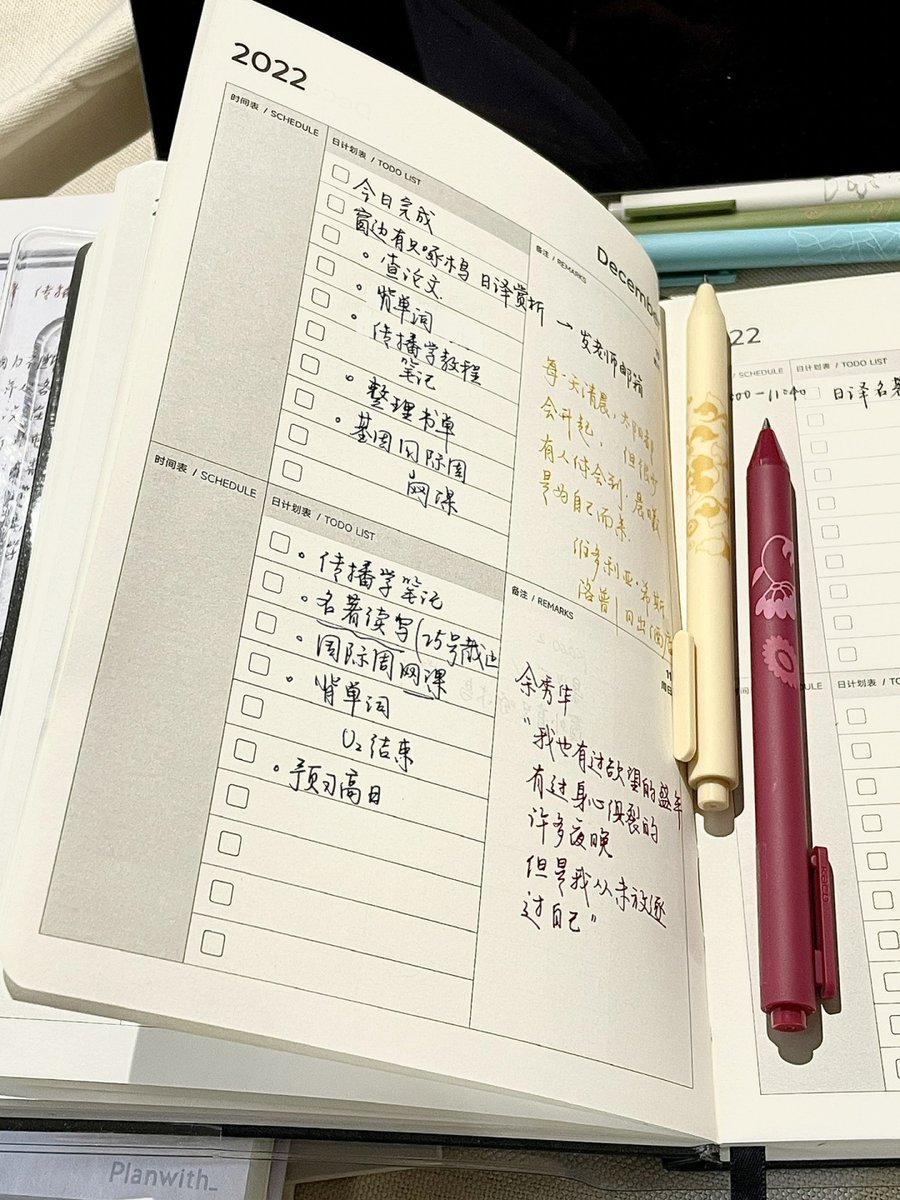 2022
时间表 / SCHEDULE
日计划表 / TODO LIST
今日完成
窗边有只啄木鸟 日译赏析 → 发老师邮箱
。查论文
。背单词
。传播学教程
笔记
。整理书单
。基因国际周
网课
备注 / REMARKS
December
每一天清晨，太阳都
会升起，但很少
有人体会到，晨曦
是为自己而来.
伯多利亚·希斯
洛普
时间表 / SCHEDULE
日计划表 / TODO LIST
。传播学笔记
。名著读写(25号截止
。国际周网课
。背单词
U2 结束
。预习高日
备注 / REMARKS
11
周日
余秀华
“我也有过欲望的盛年
有过身心俱裂的
许多夜晚
但是我从未放逐
过自己”
22
SCHEDULE
日计划表 / TODO LIST
00-11:40
日译名著
日计划表 / TO
Planwith_